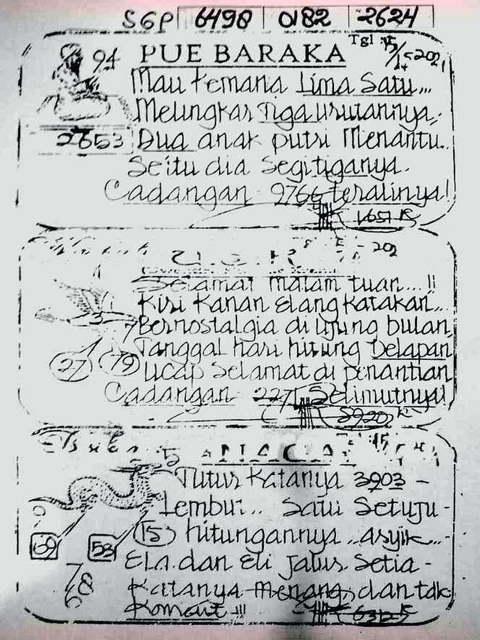 SGP 6498 0182 2624
94 PUE BARAKA Tgl
Mau kemana Lima Satu...
Melingkar Tiga urutannya..
2653 Dua anak putri Menantu..
Seitu dia Segitiganya.
Cadangan 9766 teralinya!
1651
Selamat malam tuan...!!
Kiri Kanan Elang katakan..
Bernostalgia di ujung bulan
Tanggal hari hitung Delapan
27 79 Ucap Selamat di penantian
Cadangan 2271 Selimutnya!
5920
Buka
Tutur Katanya 3903 -
Lembur.. Satu Setuju -
69 53 15 hitungannya asyik...
Ela dan Eli jalur Setia -
Katanya Menang, dan tdk
Komait !!! 6312